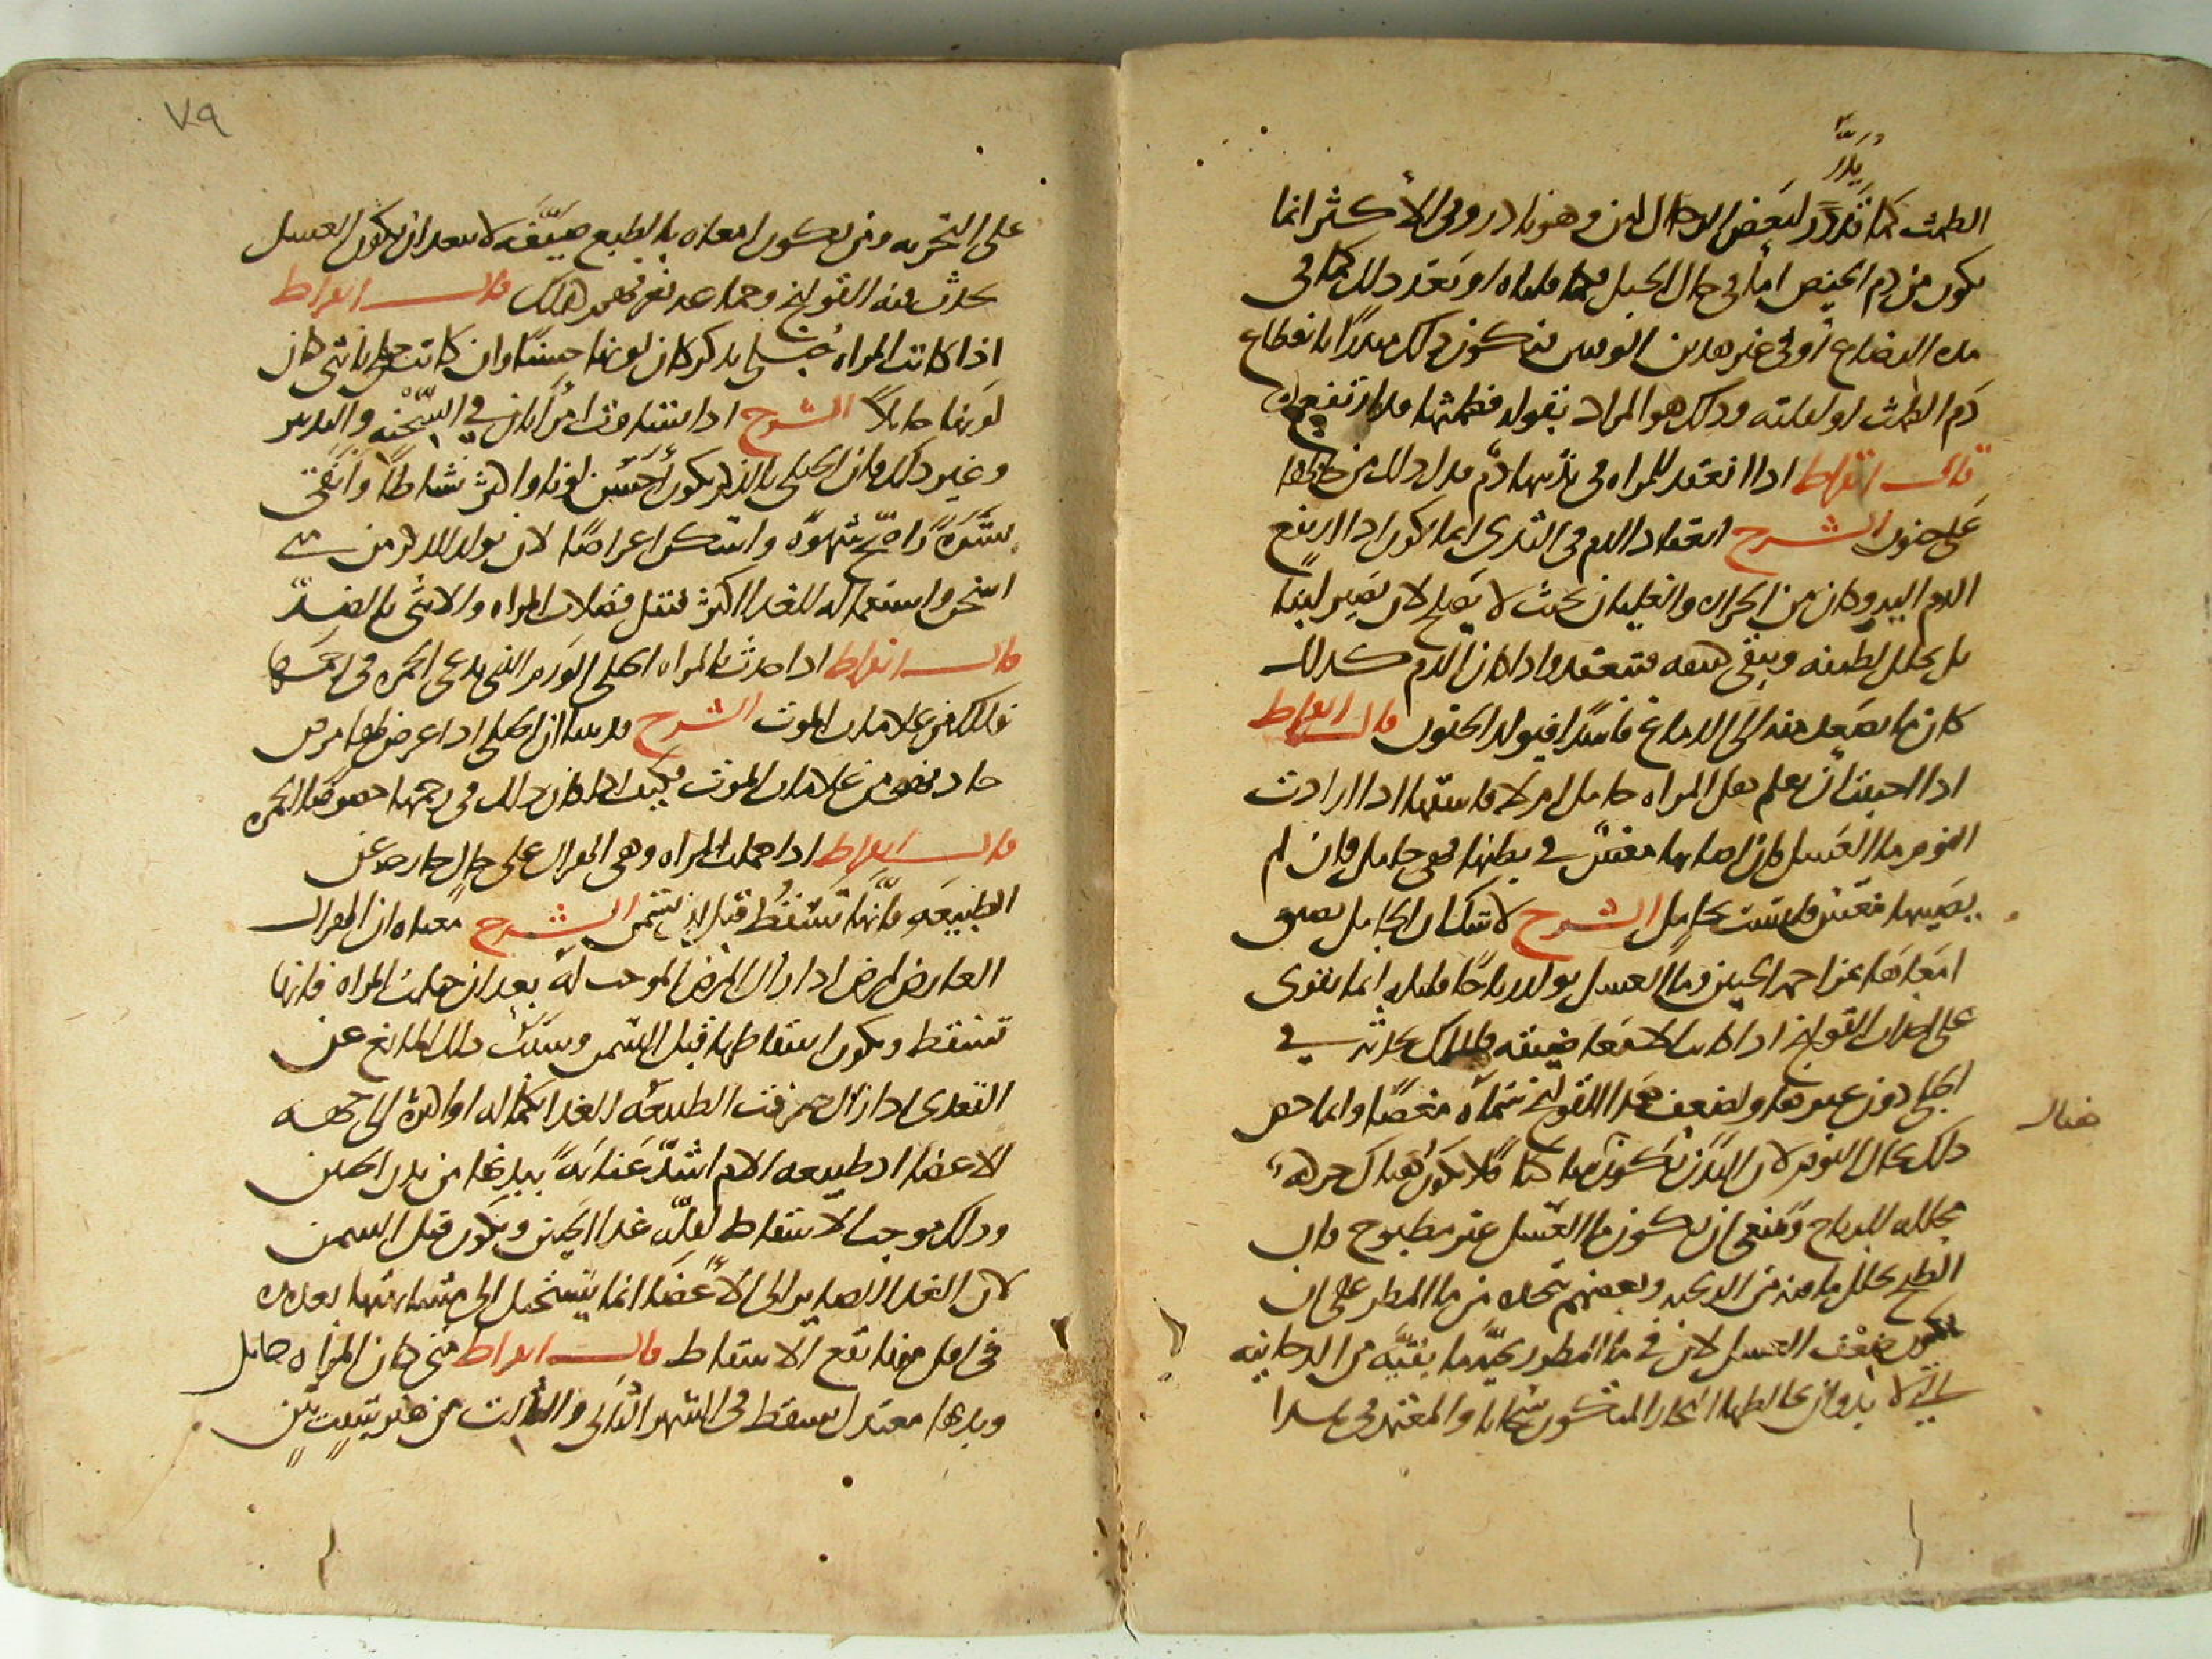 يدر
الطمث كما قد يدر لبعض الرجال لبن وهو نادر وفي الأكثر انما
يكون من دم الحيض اما في حال الحبل فكما قلناه او بعد ذلك كما في
مدة الرضاع او في غير هذين الوقتين فيكون ذلك منذرا بانقطاع
دم الطمث او لقلته وذلك هو المراد بقوله فطمثها قد ارتفع
قال ابقراط اذا انعقد للمراه في ثدييها دم دل ذلك من حالها
على جنون الشرح انعقاد الدم في الثدي انما يكون اذا ارتفع
الدم اليه وكان من الحراره والغليان بحيث لا يصلح لان يصير لبنا
بل يحلل لطيفه ويبقى كثيفه فينعقد واذا كان الدم كذلك
كان ما يصعد منه الى الدماغ فاسدا فيولد الجنون قال ابقراط
اذا احببت ان تعلم هل المراه حامل ام لا فاسقها اذا ارادت
النوم ما العسل فان اصابها مغس في بطنها فهي حامل وان لم
يصيبها مغس فليست بحامل الشرح لا شك ان الحامل يضيق
امعاها عن احمر الجنين وما العسل يولد رياحا فليله انما يقوى
على احداث القولنج اذا كانت الامعا ضيقه فلذلك يحدثه في
الحبلى دون غيرها ولضعف هذا القولنج سماه مغصا وانما خص
ذلك بحال النوم لان البدن يكون ساكنا فلا يكون هناك حركه
محلله للرياح وينبغي ان يكون ما العسل غير مطبوخ فان
الطبخ يحلل ما فيه من الريحيه وبعضهم يتخذه من ما المطر على ان
يكون ضعف العسل لان في ما المطر ريحية ما بقيه من الدخانيه
التي لا بد وان يخالطها البخار المتكون سحابا والمعتمد في هذا
ضال
٧٩
على التجربه ومن يكون امعاه بالطبع ضيقه لا يبعد ان يكون العسل
يحدث فيه القولنج وجماعه نعرفهم كذلك قال ابقراط
اذا كانت المراه حبلى بذكر كان لونها حسنا وان كانت حبلى بانثى كان
لونها حايلا الشرح اذا تشاوت امراتان في السحنه والتدبير
وغير ذلك فان الحبلى بالذكر يكون احسن لونا واكثر نشاطا وانقى
بشرة واصح شهوة واسكن اعراضا لان تولد الذكر من مني
اسخن واستعماله للغذا اكثر فتقل فضلات المراه والانثى بالضد
قال ابقراط اذا حدث بالمراه الحبلى الورم الذي يدعى الحمره في رحمها
فذلك من علامات الموت الشرح قد بينا ان الحبلى اذا عرض لها مرض
حاد فهو من علامات الموت فكيف اذا كان ذلك في رحمها خصوصا الحمره
قال ابقراط اذا حملت المراه وهي من الهزال على حال خارجه عن
الطبيعه فانها تسقط قبل ان تسمن الشرح معناه ان الهزال
العارض لمرض اذا زال المرض الموجب له بعد ان حملت المراه فانها
تسقط ويكون اسقاطها قبل السمن وسبب ذلك المانع عن
التغذي اذا زال صرفت الطبيعه الغذا بكماله او اكثره الى جهه
الاعضا اذ طبيعه الام اشد عناية ببدنها من بدن الجنين
وذلك موجب الاسقاط لقلة غذا الجنين ويكون قبل السمن
لان الغذا الصاير الى الاعضا انما يستحيل الى مشابهتها بعد مده
في اقل منها يقع الاسقاط قال ابقراط متى كان المراه حامل
وبدنها معتدل تسقط في الشهر الثاني والثالث من غير سبب بين